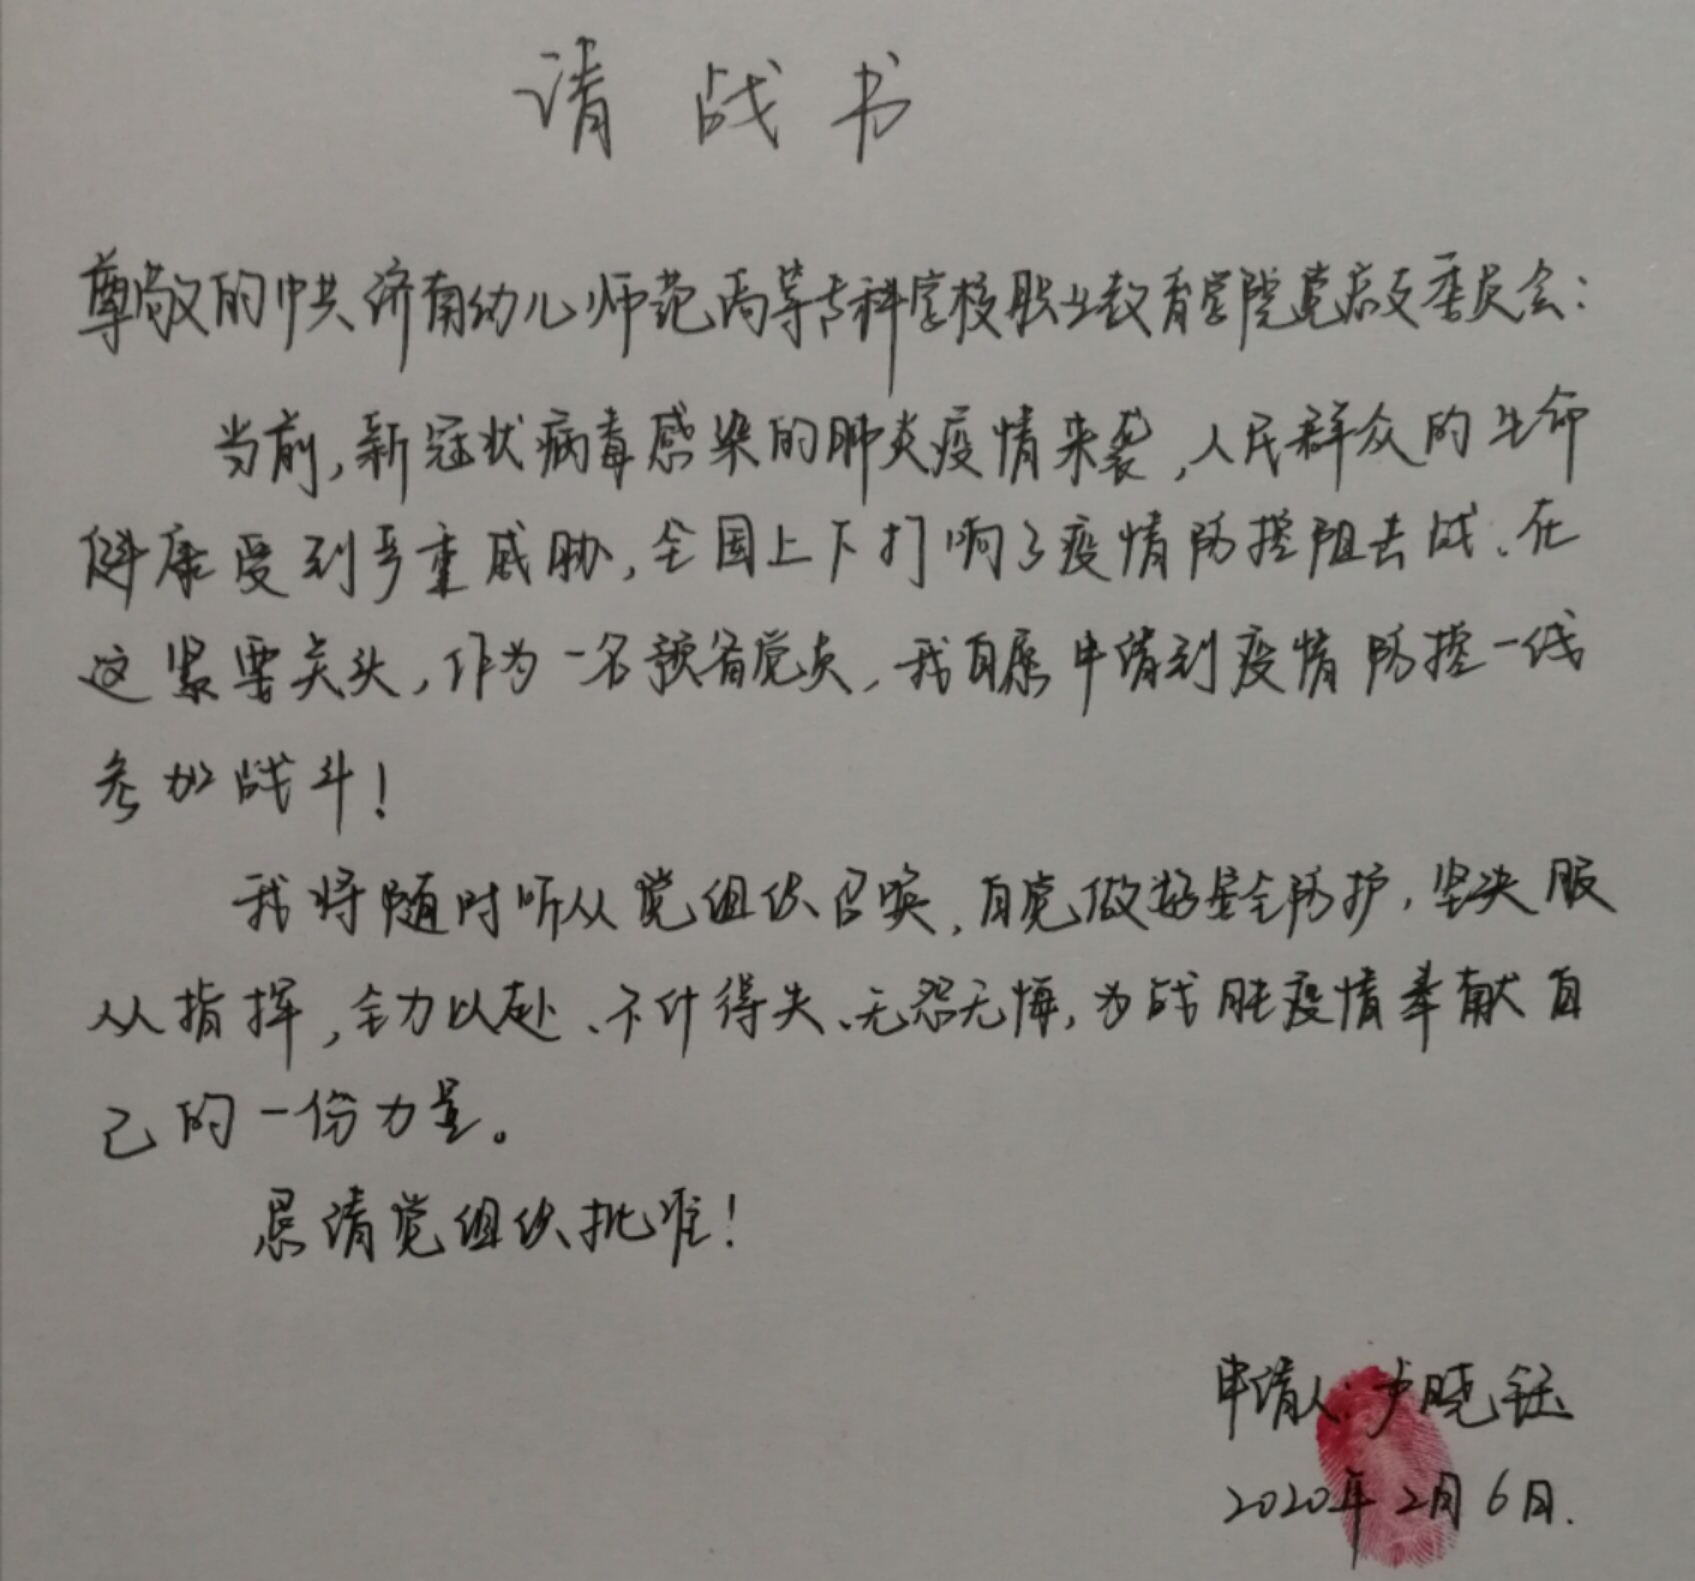 请战书
尊敬的中共济南幼儿师范高等专科学校职业教育学院党总支委员会：
当前,新冠状病毒感染的肺炎疫情来袭,人民群众的生命
健康受到严重威胁,全国上下打响了疫情防控阻击战、在
这紧要关头,作为一名预备党员,我自愿申请到疫情防控一线
参加战斗!
我将随时听从党组织召唤,自觉做好安全防护,坚决服
从指挥,全力以赴、不计得失、无怨无悔,为战胜疫情奉献自
己的一份力量。
恳请党组织批准!
申请人:卢晓钰
2020年2月6日.